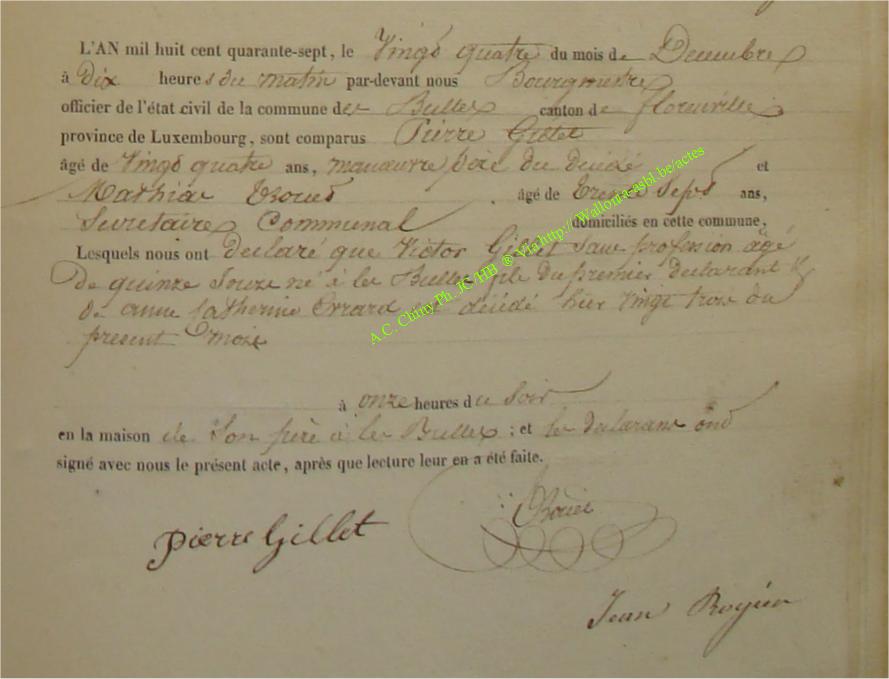 L'AN mil huit cent quarante-sept, le Vingt quatre du mois de Decembre
à Dix heures du matin par-devant nous Bourgmestre
officier de l'état civil de la commune de les Bulles canton de florenville
province de Luxembourg, sont comparus Pierre Gillet
âgé de Vingt quatre ans, manœuvre père du décédé et
Mathias âgé de trente Sept ans,
Secretaire Communal domiciliés en cette commune,
Lesquels nous ont declaré que Victor Gillet Sans profession agé
De quinze Jours né à les Bulles fils du premier declarant &
de anne Catherine Errard est décédé hier Vingt trois du
présent mois
à onze heures du Soir
en la maison de Son père à les Bulles ; et les declarans ont
signé avec nous le présent acte, après que lecture leur en a été faite.
Pierre Gillet
Jean
A.C. Chiny Ph. JC HB ® Via http://Wallonia-asbl.be/actes